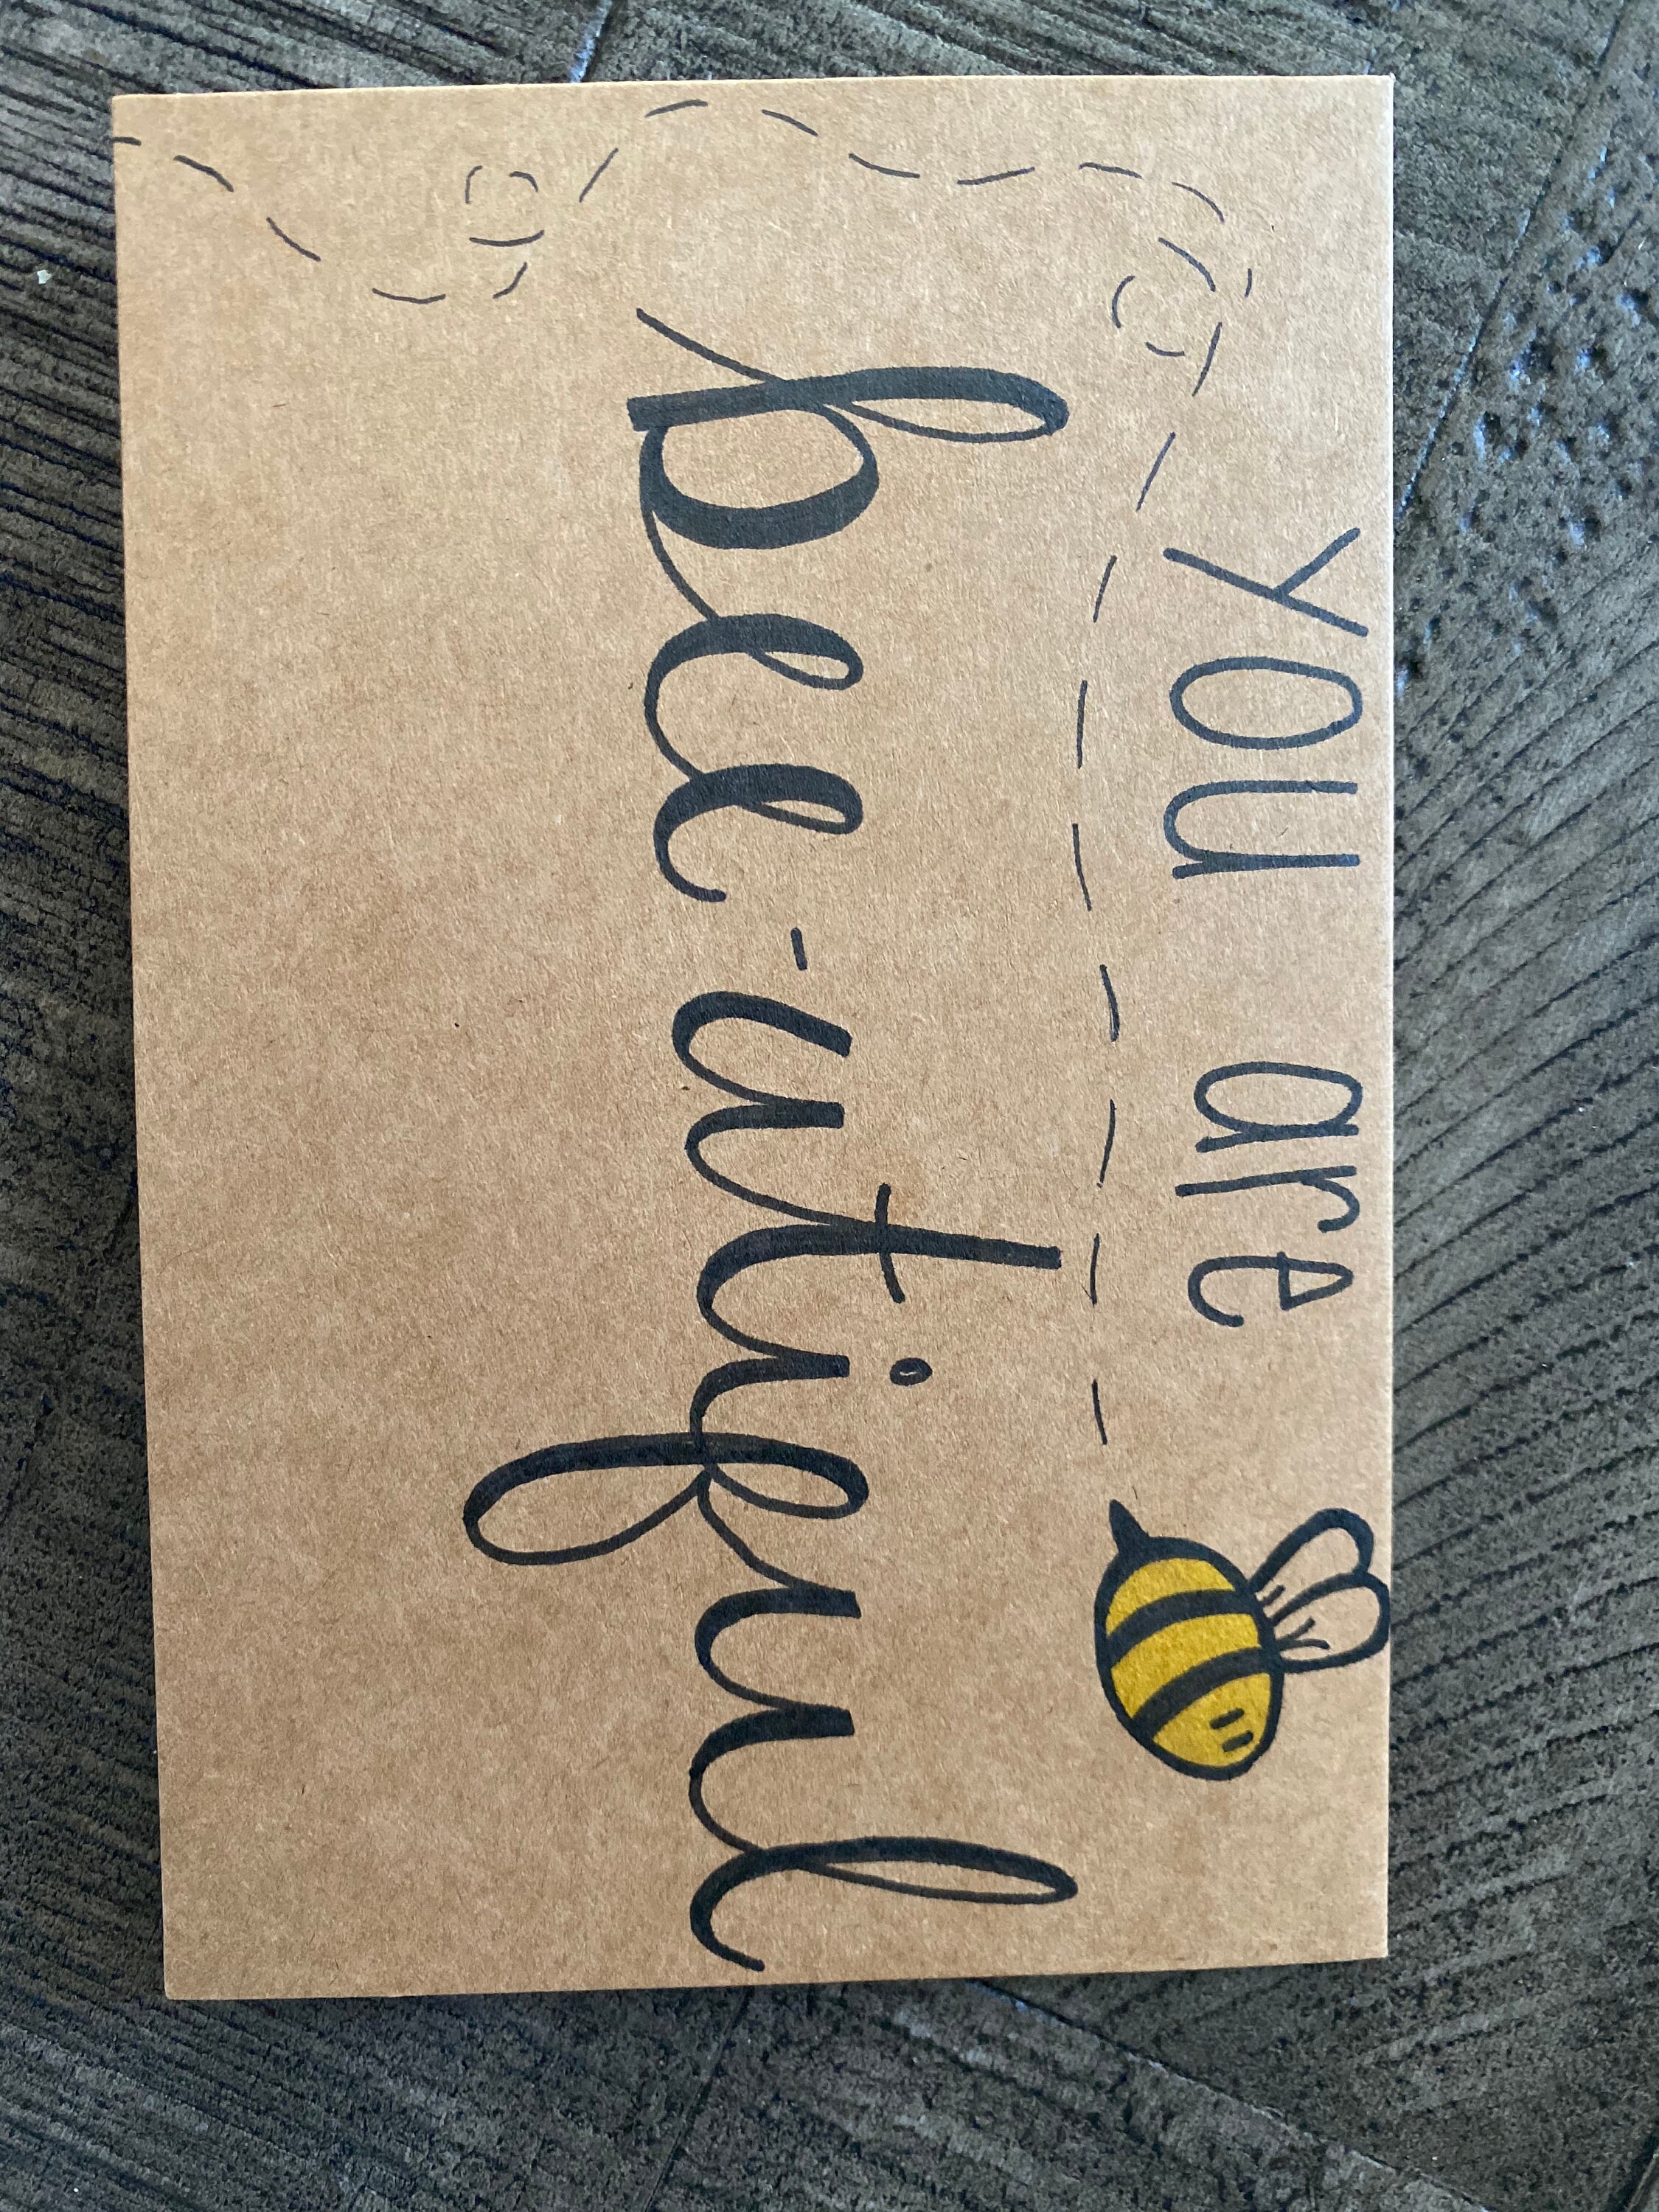 you are
bee-utiful